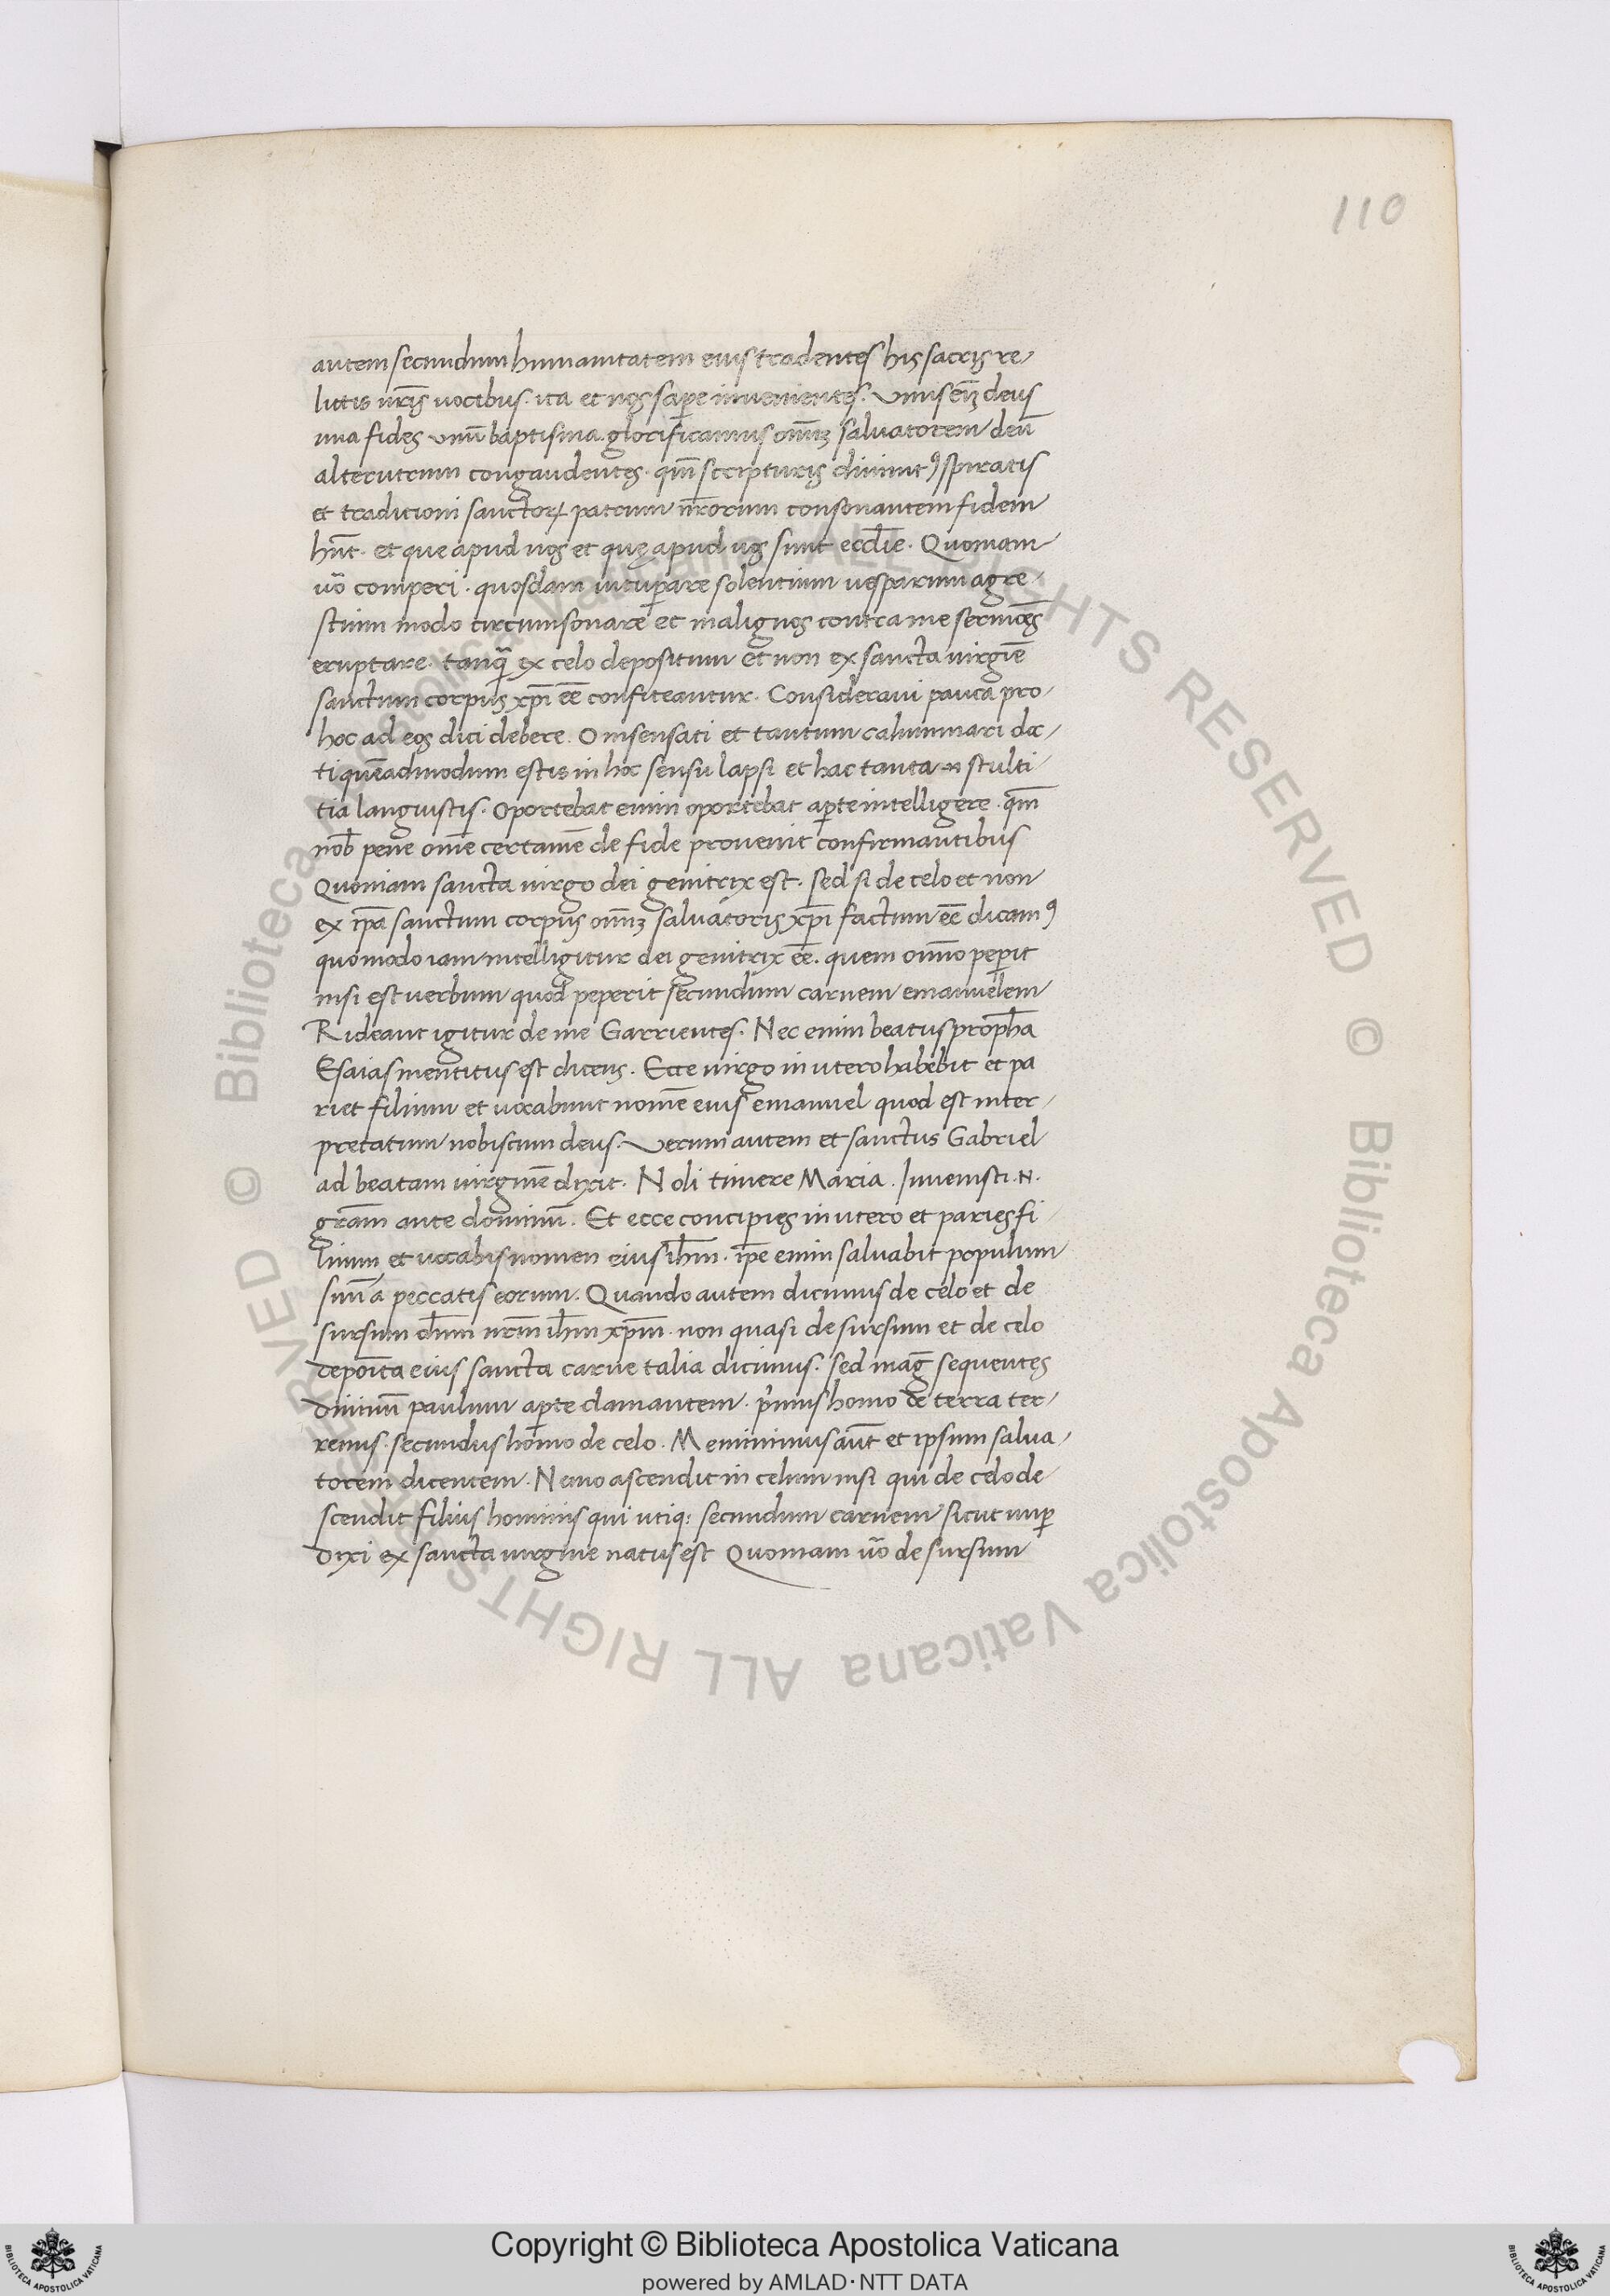 110
autem secundum humanitatem eius tradentes his sacris re
litis nr̄is uocibus. ita et nos sap̲e inuenientes. Vnus em̄ deus
una fides unū baptisma. glorificamus om̄iꝫ saluatorem deū
alterutrum congaudentes. qm̄ scripturis diuinitꝰ spiratis
et traditioni sanctoꝝ patrum nr̄orum consonantem fidem
hn̄t. et que apud nos et quę apud uos sunt eccl̄ie. Quoniam
uō comperi. quosdam uitup̲are solentium uesparum agre
stium modo circumsonare et malignos contra me sermōes
eruptare. tanq̄ ex celo depositum et non ex sancta uirgīe
sanctum corpus xp̄i eē confiteantur. Consideraui pauca pro
hoc ad eos dici debere. O insensati et tantum calumniari doc
ti quēadmodum estis in hoc sensu lapsi et hac tanta stulti
tia languistis. Oportebat enim oportebat ap̲te intelligere. qm̄
nob̄ pene om̄e certamē de fide prouenit confirmantibus
Quoniam sancta uirgo dei genitrix est. sed si de celo et non
ex ip̄a sanctum corpus om̄iꝫ saluatoris xp̄i factum eē dicamꝰ
quomodo iam intelligitur dei genitrix eē. quem om̄o pep̲it
nisi est uerbum quod peperit secundum carnem emanuelem
Rideant igitur de me Garrientes. Nec enim beatus proph̄a
Esaias mentitus est dicens. Ecce uirgo in utero habebit et pa
riet filium et uocabunt nomē eius emanuel quod est inter
pretatum nobiscum deus. Verum autem et sanctus Gabriel
ad beatam uirginē dixit. Noli timere Maria. Inuenisti .N.
grām ante dominū. Et ecce concipies in utero et paries fi
lium et uocabis nomen eius ih̄m. ip̄e enim saluabit populum
suū a peccatis eorum. Quando autem dicimus de celo et de
sursum dn̄m nr̄m ih̄m xp̄m. non quasi de sursum et de celo
depoīta eius sancta carne talia dicimus. sed maḡ sequentes
diuinū paulum ap̲te clamantem. p̓mus homo de terra ter
renus. secundus homo de celo. Meminimus aūt et ipsum salua
torem dicentem. Nemo ascendit in celum nisi qui de celo de
scendit filius hominis qui utiqꝫ secundum carnem sicut nup̲
dixi ex sancta uirgine natus est Quoniam uō de sursum
© Biblioteca Apostolica Vaticana ALL RIGHTS RESERVED © Biblioteca Apostolica Vaticana ALL RIGHTS RESERVED
Copyright © Biblioteca Apostolica Vaticana
powered by AMLAD·NTT DATA
BIBLIOTECA APOSTOLICA VATICANA
BIBLIOTECA APOSTOLICA VATICANA